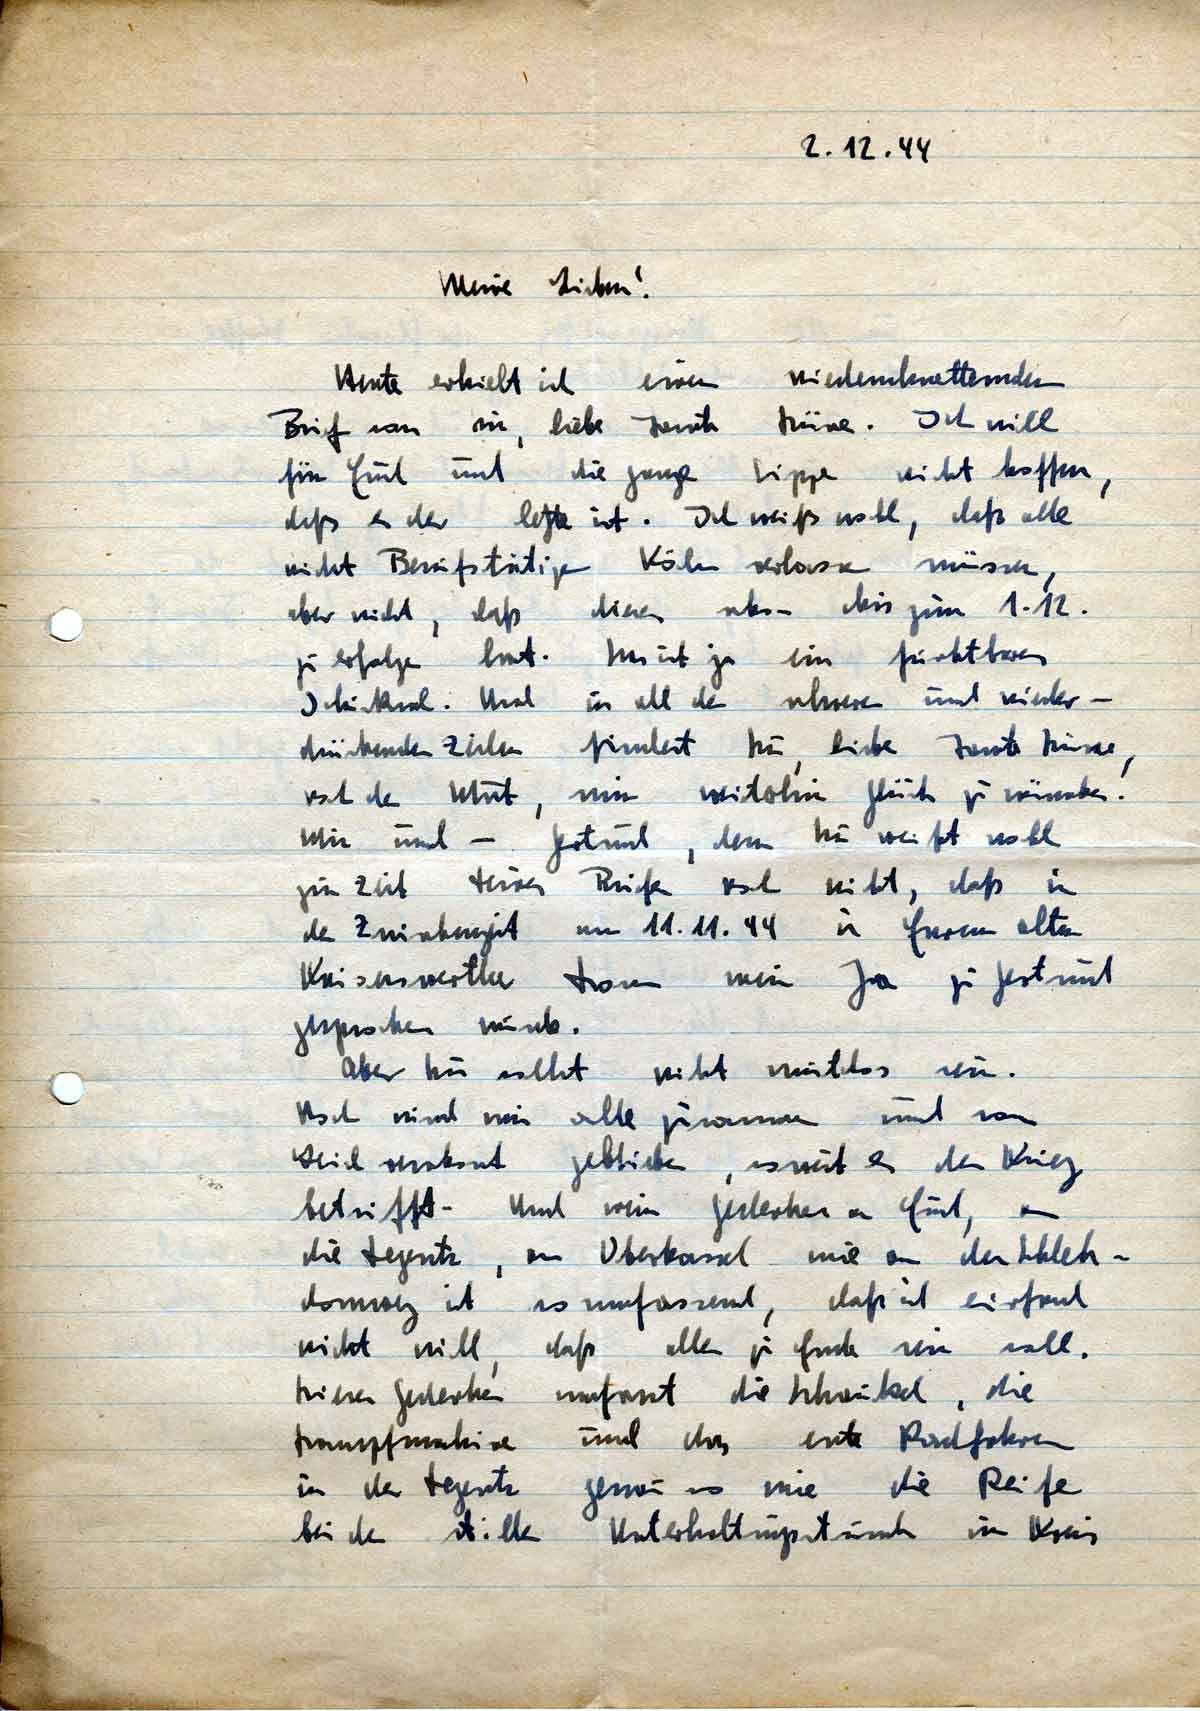 2.12.44
Meine Lieben!
Heute erhielt ich einen niederschmetternden
Brief von Dir, liebe Tante Änne. Ich will
für Euch und die ganze Sippe nicht hoffen,
daß er der letzte ist. Ich weiß wohl, daß alle
nicht Berufstätigen Köln verlassen müssen,
aber nicht, daß dieses schon bis zum 1.12.
zu erfolgen hat. Das ist ja ein furchtbares
Schicksal. Und in all den schweren und nieder-
drückenden Zeilen findest Du, liebe Tante
noch den Mut, mir weiterhin Glück zu wünschen!
Mir und - Gertrud, denn Du weißt wohl
zur Zeit Deines Briefes noch nicht, daß in
der Zwischenzeit am 11.11.44 in Eurem alten
Kaiserswerther Dom mein Ja zu Gertrud
gesprochen wurde.
Aber Du sollst nicht mutlos sein.
Noch sind wir alle zusammen und von
Leid verschont geblieben, soweit es den Krieg
betrifft. Und mein Gedenken an Euch, an
die, an Oberkassel wie an den
ist so umfassend, daß ich einfach
nicht will, daß alles zu Ende sein soll.
Dieses Gedenken umfasst die Schaukel, die
Dampfmaschine und das erste Radfahren
in der genau so wie die Reife
bei den stillen Unterhaltungsstunden im Kreis